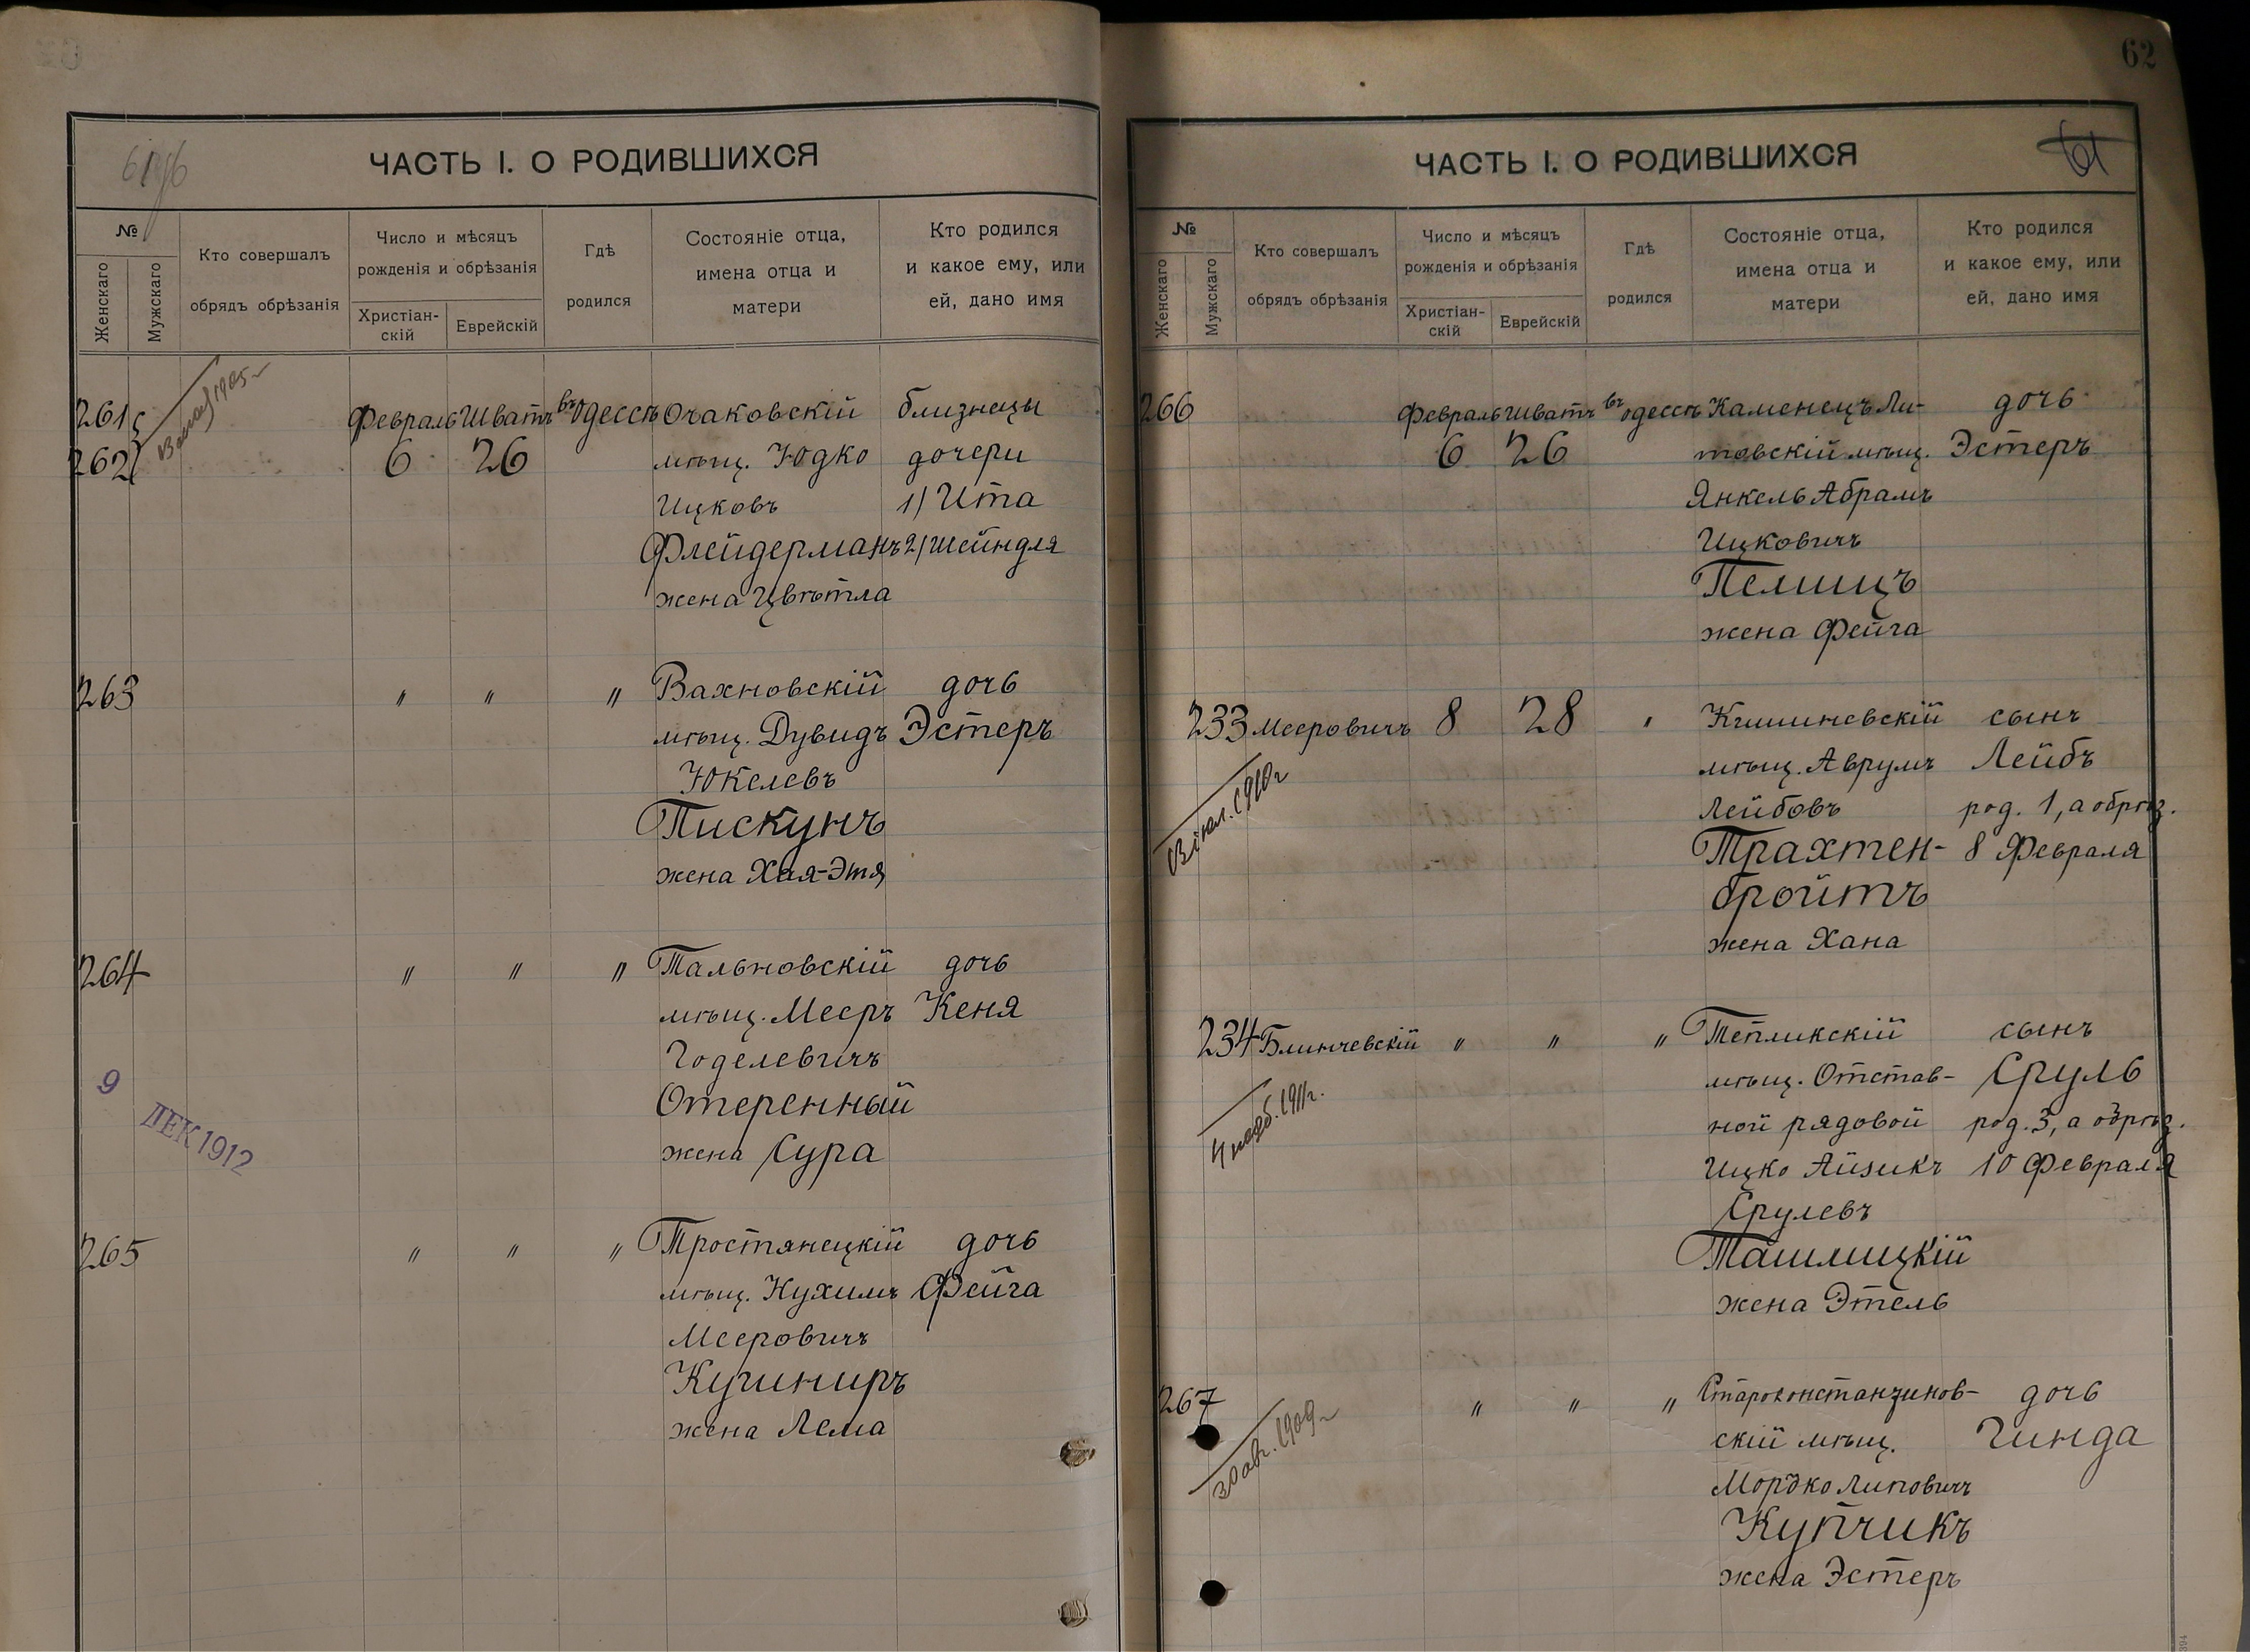 ЧАСТЬ I. О РОДИВШИХСЯ
№
Женскаго
Мужскаго
Кто совершалъ
обрядъ обрѣзанія
Число и мѣсяцъ
рожденія и обрѣзанія
Христіан-
скій
Еврейскій
Гдѣ
родился
Состояніе отца,
имена отца и
матери
Кто родился
и какое ему, или
ей, дано имя
261 Февраль Шватъ въ Одессѣ Очаковскій близнецы
262 6 26 мѣщ. Юдко дочери
Ицковъ 1) Ита
Флейдерманъ 2) Шейндля
жена Цвѣтла
263 " " " Вахновскій дочь
мѣщ. Дувидъ Эстеръ
Юкелевъ
Пискунъ
жена Хая-Этя
264 " " " Тальновскій дочь
мѣщ. Мееръ Кеня
Годелевичъ
Отеренный
жена Сура
9
ДЕК 1912
265 " " " Тростянецкій дочь
мѣщ. Нухимъ Фейга
Мееровичъ
Кушниръ
жена Лема
62
ЧАСТЬ I. О РОДИВШИХСЯ
61
№
Женскаго
Мужскаго
Кто совершалъ
обрядъ обрѣзанія
Число и мѣсяцъ
рожденія и обрѣзанія
Христіан-
скій
Еврейскій
Гдѣ
родился
Состояніе отца,
имена отца и
матери
Кто родился
и какое ему, или
ей, дано имя
266 Февраль Шватъ въ Одессѣ Каменецъ Ли- дочь
6 26 товскій мѣщ. Эстеръ
Янкель Абрамъ
Ицковичъ
Пелицъ
жена Фейга
233 Мееровичъ 8 28 " Кишиневскій сынъ
мѣщ. Аврумъ Лейбъ
Лейбовъ род. 1, а обрѣз.
Трахтен- 8 Февраля
бройтъ
жена Хана
1910 г
234 Блинчевскій " " " Тепликскій сынъ
мѣщ. Отстав- Сруль
ной рядовой род. 3, а обрѣз.
Ицко Айзикъ 10 Февраля
Срулевъ
Ташлицкій
жена Этель
4 нояб. 1911 г.
267 " " " Староконстантинов- дочь
скій мѣщ. Гинда
Мордко Липовичъ
Купчикъ
жена Эстеръ
30 авг. 1909 г